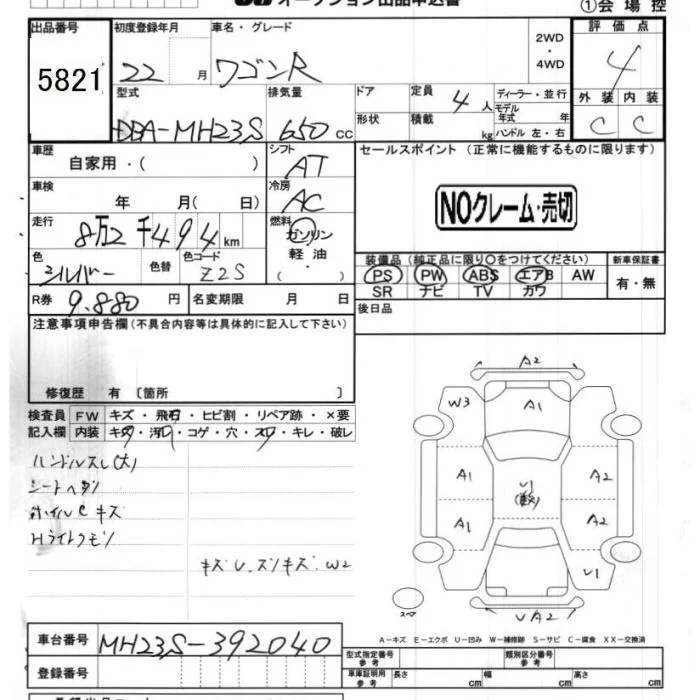 オークション出品申込書
①会場控
出品番号 初度登録年月 車名・グレード 2WD ・ 4WD 評価点
5821 22月 ワゴンR 4
型式 排気量 ドア 定員 4人 ディーラー・並行 外装 内装
DBA-MH23S 650cc 形状 積載 kg モデル年式 年 ハンドル 左・右 C C
車歴 シフト セールスポイント(正常に機能するものに限ります)
自家用・( ) AT
車検 冷房
年 月( 日) AC NOクレーム・売切
走行 燃料
8万2千494km ガソリン
色 色替 色コード 軽油 装備品(純正品に限り○をつけてください) 新車保証書
シルバー Z2S ・( ) PS PW ABS エアB AW 有・無
R券 9.880円 名変期限 月 日 SR ナビ TV カワ
注意事項申告欄(不具合内容等は具体的に記入して下さい) 後日品
修復歴 有 〔箇所 〕
検査員 FW キズ・飛石・ヒビ割・リペア跡・×要
記入欄 内装 キズ・汚レ・コゲ・穴・スレ・キレ・破レ
ハンドルスレ(大)
シートヘタリ
ホイルCキズ
Hライトクモリ
キズU.ズンキズ.W2
A2
W3 A1
A1 U1 A2
(軽)
A1 A2
U1
スペア UA2
A-キズ E-エクボ U-凹み W-補修跡 S-サビ C-腐食 XX-交換済
車台番号 MH23S-392040
型式指定番号 参考 類別区分番号 参考
登録番号 車庫証明用 参考 長さ cm 幅 cm 高さ cm